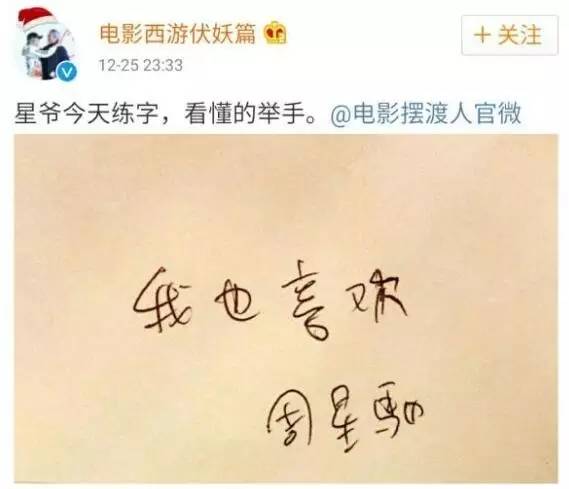 电影西游伏妖篇
+关注
12-25 23:33
星爷今天练字，看懂的举手。@电影摆渡人官微
我也喜欢
周星驰